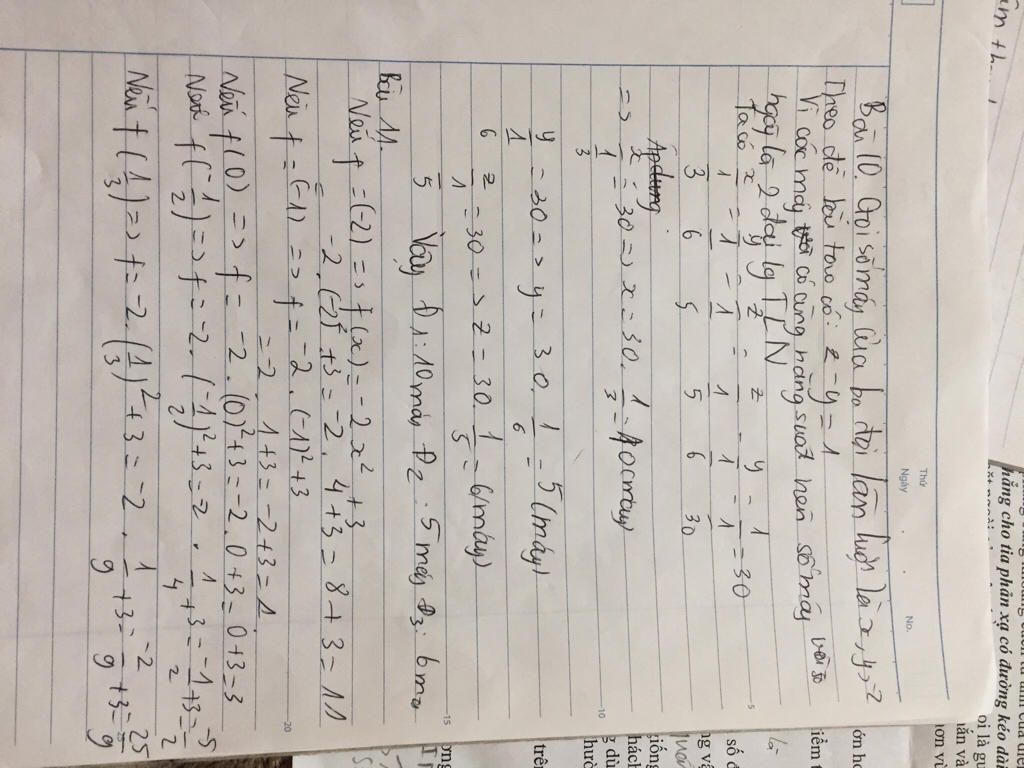 Thứ
Ngày
No.
Bài 10. Gọi số máy của ba đội lần lượt là x, y, z
Theo đề bài ta có: z - y = 1
Vì các máy có cùng năng suất nên số máy và số
ngày là 2 đại lg TLN
Ta có x/(1/3) = y/(1/6) = z/(1/5) = (z - y)/(1/5 - 1/6) = 1/(1/30) = 30
5
Áp dụng
=> x/(1/3) = 30 => x = 30. 1/3 = 10 (máy)
10
y/(1/6) = 30 => y = 30. 1/6 = 5 (máy)
z/(1/5) = 30 => z = 30. 1/5 = 6 (máy)
15
Vậy Đ1: 10 máy Đ2: 5 máy Đ3: 6 má
Bài 11.
Nếu f = (-2) => f(x) = -2x² + 3
= -2. (-2)² + 3 = -2. 4 + 3 = 8 + 3 = 11
Nếu f = (-1) => f = -2. (-1)² + 3
20
= -2. 1 + 3 = -2 + 3 = 1
Nếu f(0) => f = -2. (0)² + 3 = -2. 0 + 3 = 0 + 3 = 3
Nếu f(-1/2) => f = -2. (-1/2)² + 3 = -2. 1/4 + 3 = -1/2 + 3 = -5/2
Nếu f(1/3) => f = -2. (1/3)² + 3 = -2. 1/9 + 3 = -2/9 + 3 = 25/9
hẳng cho tia phản xạ có đường kéo dài